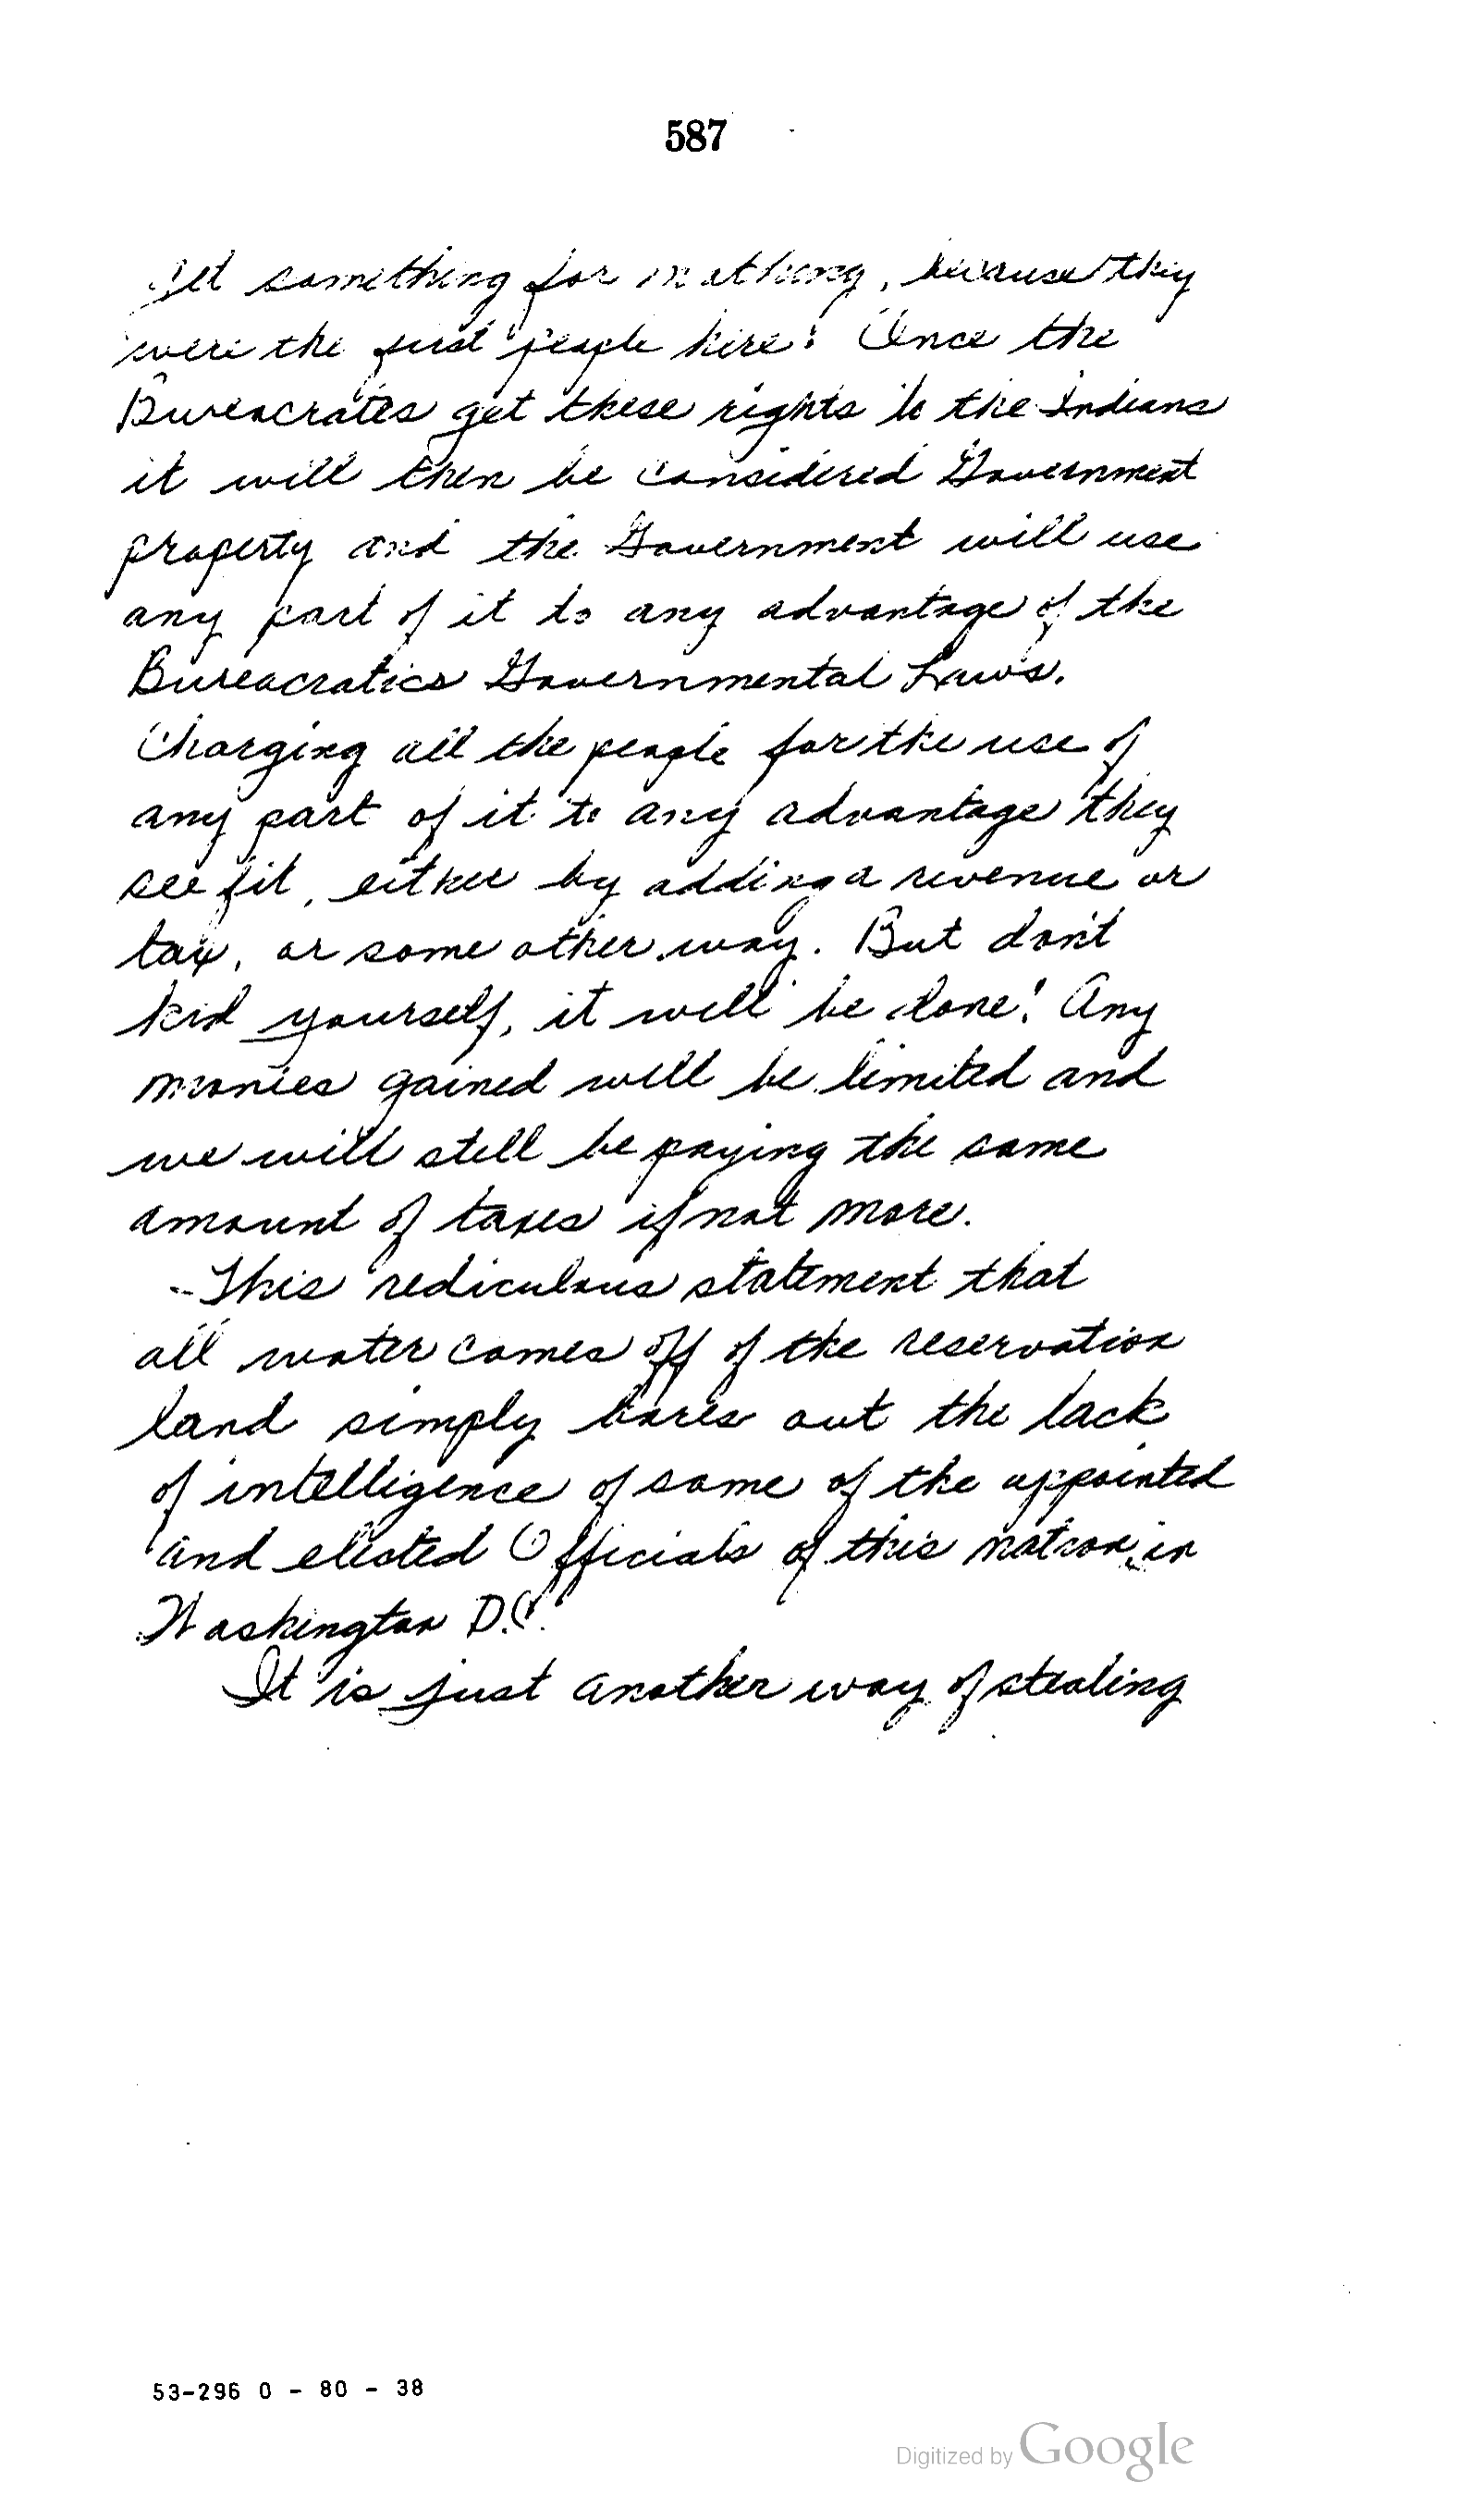 587
get something for nothing, because they
were the first people here! Once the
Bureacrates get these rights to the Indians
it will then be considered Government
property and the Government will use
any part of it to any advantage of the
Bureacratics Governmental Laws.
Charging all the people for the use of
any part of it to any advantage they
see fit, either by adding a revenue or
tax, or some other way. But don't
kid yourself, it will be done! Any
monies gained will be limited and
we will still be paying the same
amount of taxes if not more.
-This rediculous statement that
all water comes off of the reservation
land simply bares out the lack
of intelligence of some of the appointed
and elected Officials of this nation, in
Washington D.C.
It is just another way of stealing
53-296 0 - 80 - 38
Digitized by Google